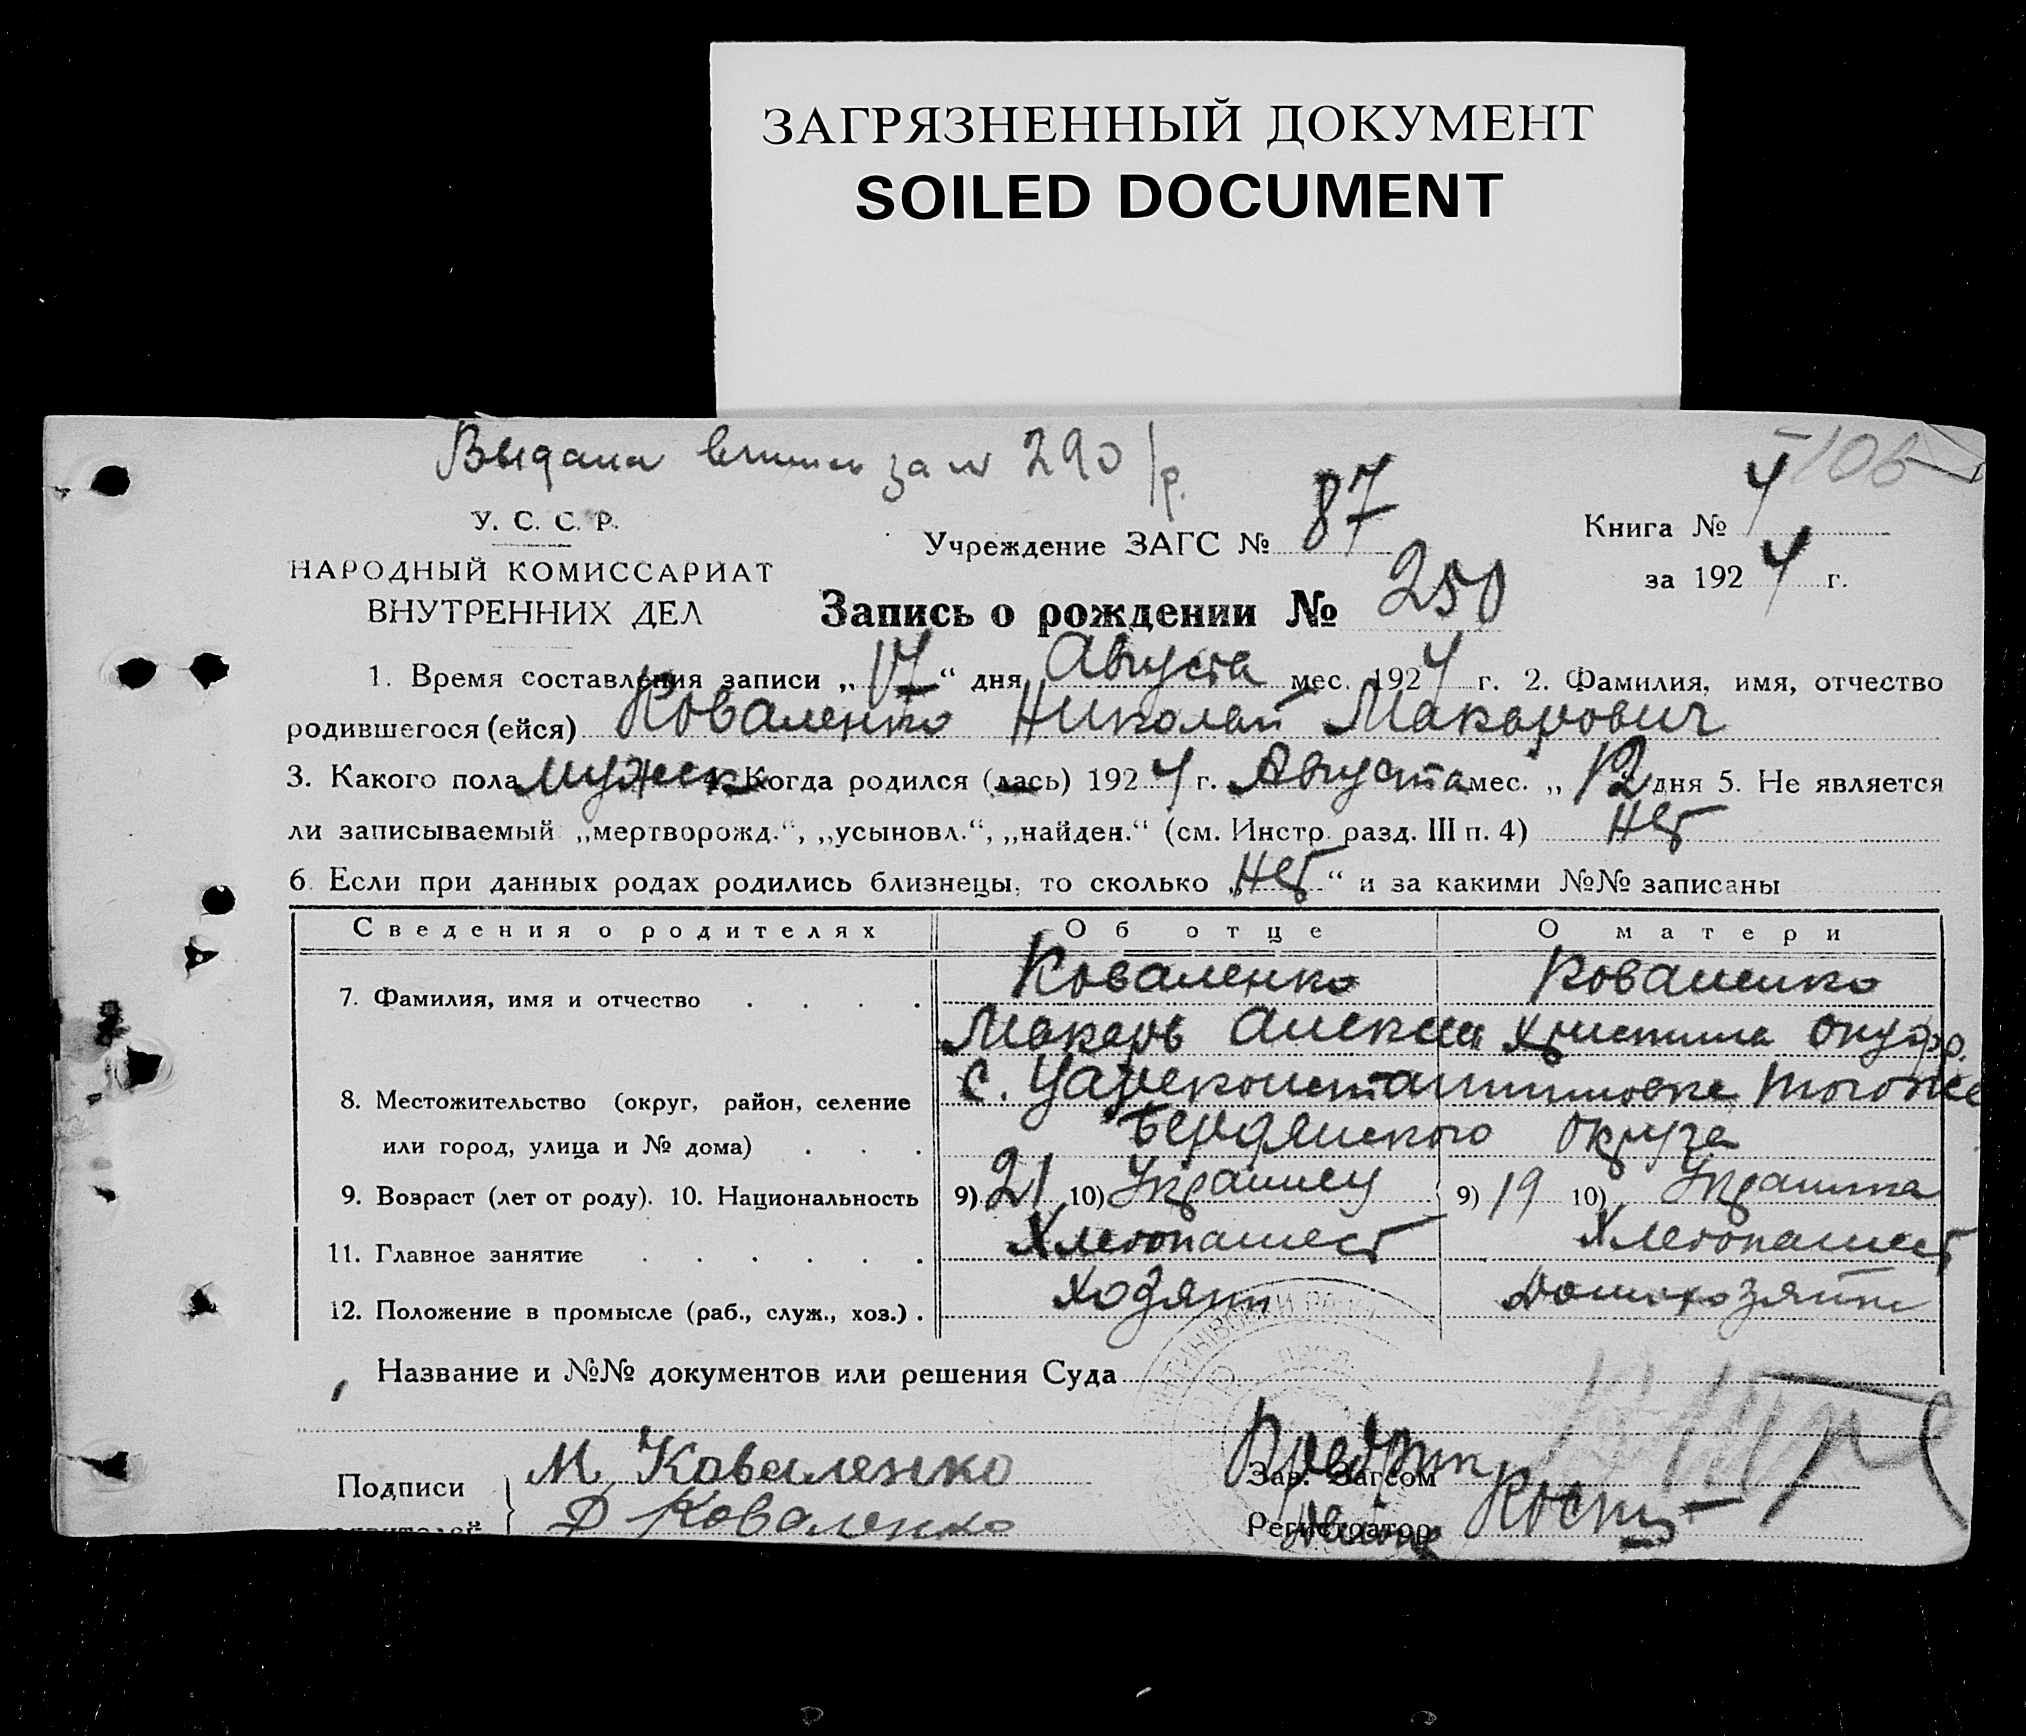 ЗАГРЯЗНЕННЫЙ ДОКУМЕНТ
SOILED DOCUMENT
Выдана за № 290 /р.
106
У. С. С. Р.
НАРОДНЫЙ КОМИССАРИАТ
ВНУТРЕННИХ ДЕЛ
Учреждение ЗАГС № 87
Книга № 4
за 1924 г.
Запись о рождении № 250
1. Время составления записи „17“ дня Августа мес. 1924 г. 2. Фамилия, имя, отчество
родившегося (ейся) Коваленко Николай Макарович
3. Какого пола мужск 4. Когда родился (лась) 1924 г. Августа мес. „12“ дня 5. Не является
ли записываемый „мертворожд.“, „усыновл.“, „найден.“ (см. Инстр. разд. III п. 4) нет
6. Если при данных родах родились близнецы, то сколько „нет“ и за какими №№ записаны
Сведения о родителях Об отце О матери
7. Фамилия, имя и отчество Коваленко Коваленко
Макарь Алексеев Христина Онуфр.
8. Местожительство (округ, район, селение с. Цареконстантиновке тогоже
или город, улица и № дома) Бердянского округа
9. Возраст (лет от роду). 10. Национальность 9) 21 10) Украинец 9) 19 10) Украинка
11. Главное занятие Хлебопашест Хлебопашест
12. Положение в промысле (раб., служ., хоз.) Хозяин Домохозяйн
Название и №№ документов или решения Суда
Подписи М Коваленко
Д Коваленко
Зав. Загсом
Регистратор